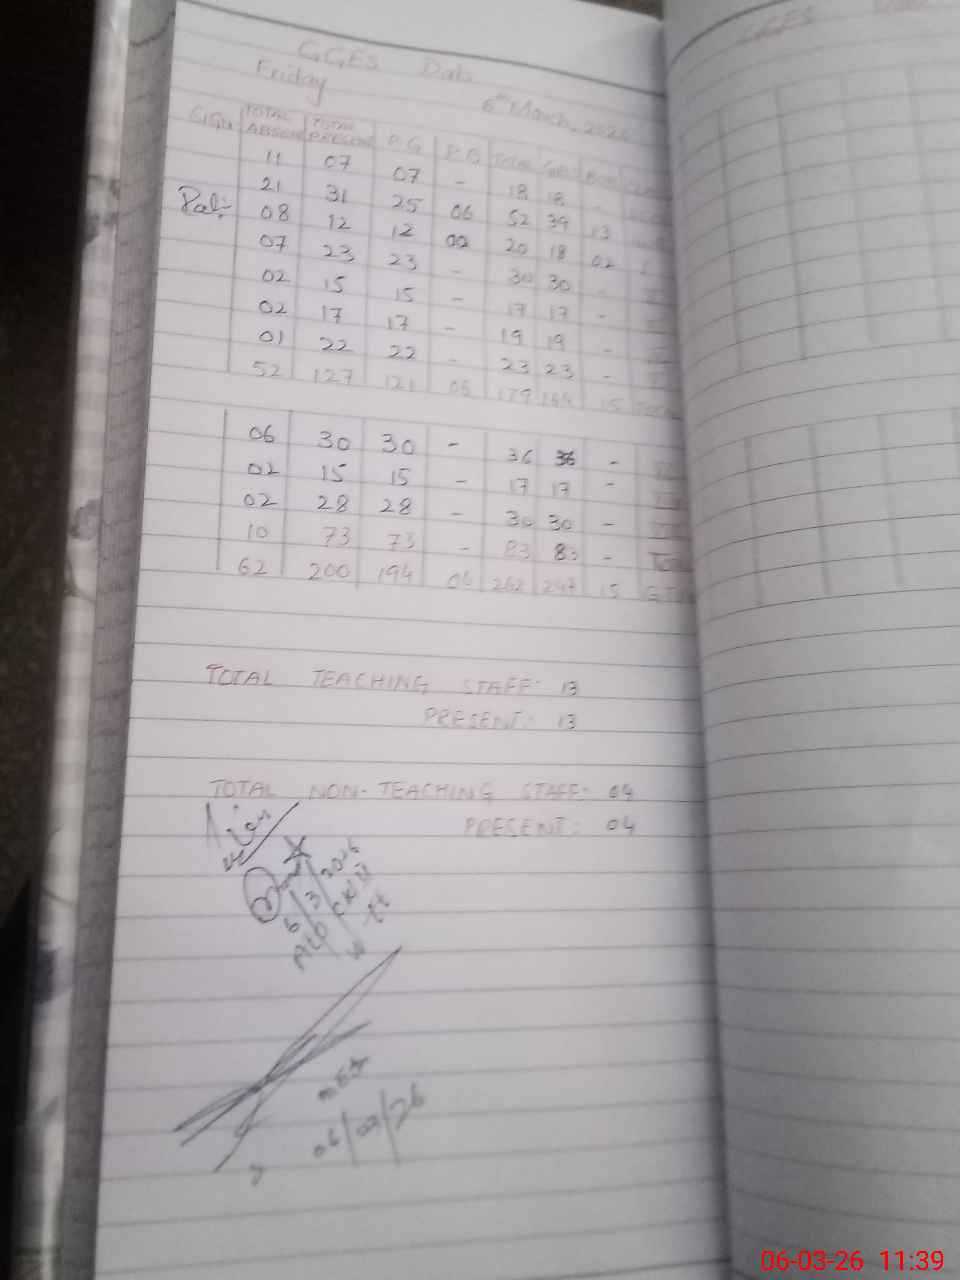 GGES Data
Friday 6th March, 2026
SIGN TOTAL ABSENT TOTAL PRESENT P.G P.B TOTAL
11 07 07 - 18 18 -
21 31 25 06 52 39 13
08 12 12 00 20 18 02
07 23 23 - 30 30 -
02 15 15 - 17 17 -
02 17 17 - 19 19 -
01 22 22 - 23 23 -
52 127 121 06 179 164 15 TOTAL
06 30 30 - 36 36 -
02 15 15 - 17 17 -
02 28 28 - 30 30 -
10 73 73 - 83 83 - TOTAL
62 200 194 06 262 247 15 G.T
TOTAL TEACHING STAFF: 13
PRESENT: 13
TOTAL NON-TEACHING STAFF: 04
PRESENT: 04
6/3/2026
MEA
06/03/26
GGES
06-03-26 11:39